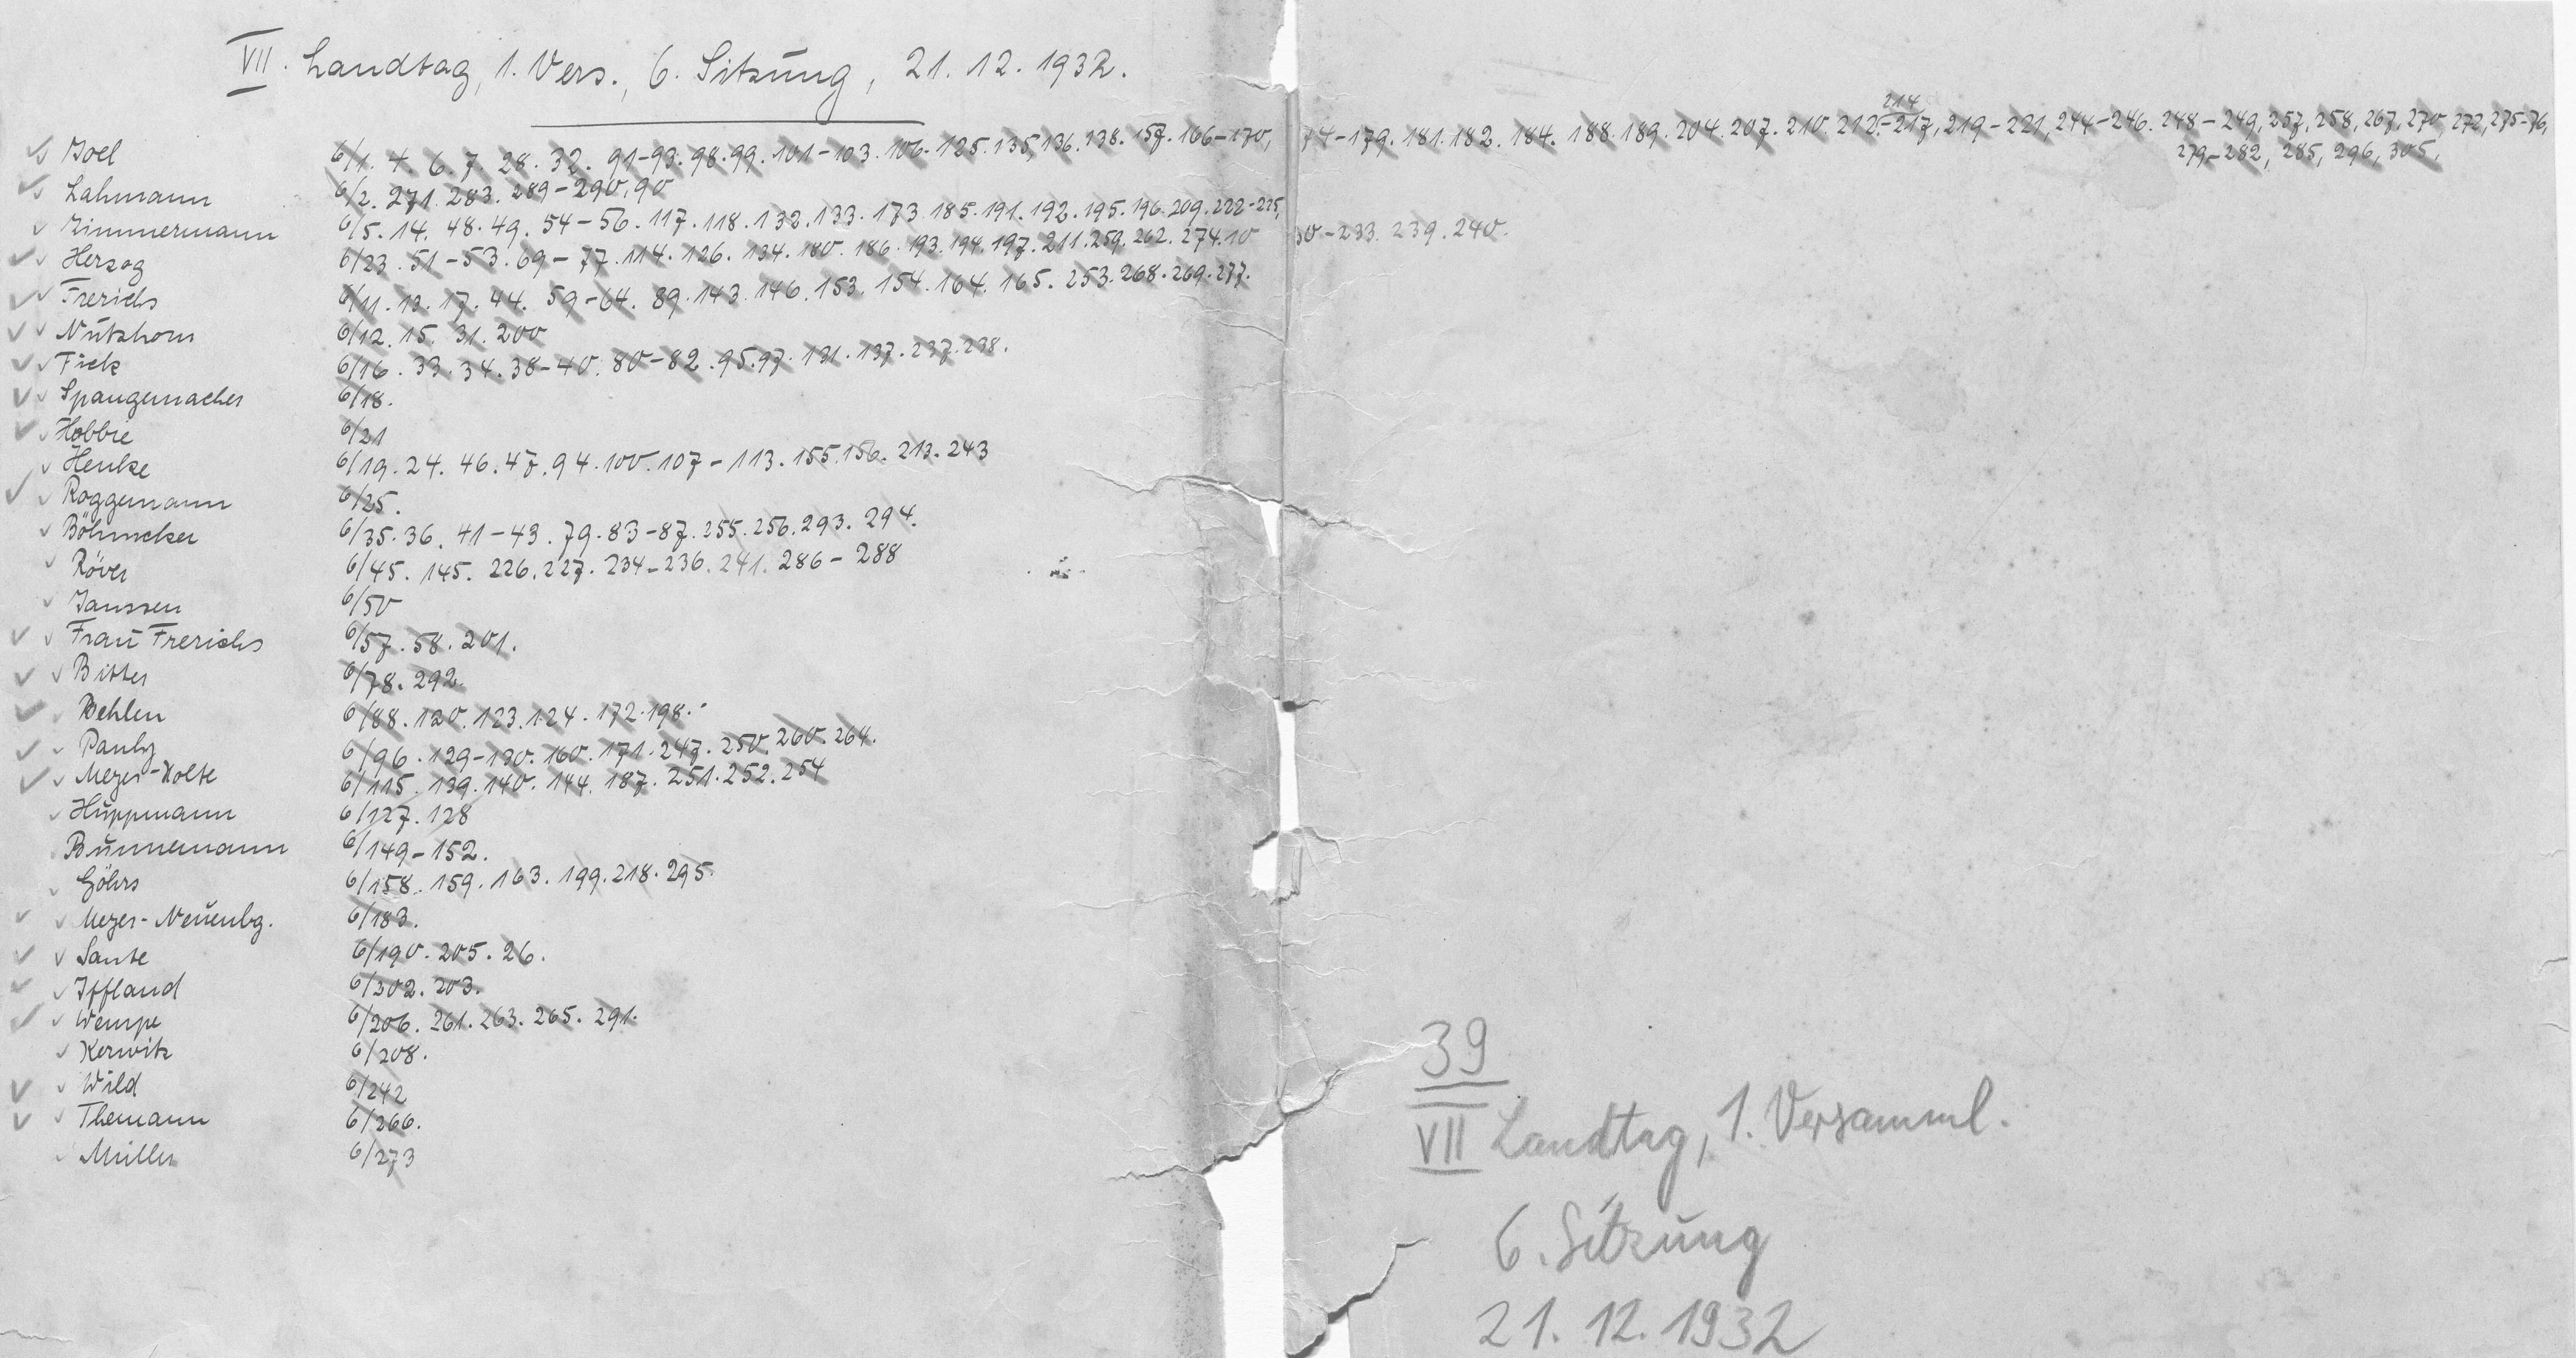 VII. Landtag, 1. Vers., 6. Sitzung, 21. 12. 1932.
Joel 6/1. 4. 6. 7. 28. 32. 91-93. 98. 99. 101-103. 106. 125. 135, 136. 138. 157. 166-170, 74-179. 181. 182. 184. 188. 189. 204. 207. 210. 212.-217, 219-221, 244-246. 248-249, 257, 258, 267, 270, 272, 275-76,
214
279-282, 285, 296, 305,
Lahmann 6/2. 271. 283. 289-290, 90
Zimmermann 6/5. 14. 48. 49. 54-56. 117. 118. 132. 133. 173. 185. 191. 192. 195. 196. 209. 222-225, 30-233. 239. 240.
Herzog 6/23. 51-53. 69-77. 114. 126. 134. 180. 186. 193. 194. 197. 211. 259. 262. 274. 10
Frerichs 6/11. 13. 17. 44. 59-64. 89. 143. 146. 153. 154. 164. 165. 253. 268. 269. 277.
Nutzhorn 6/12. 15. 31. 200
Fick 6/16. 33. 34. 38-40. 80-82. 95. 97. 131. 137. 237. 238.
Spangemacher 6/18.
Hobbie 6/21
Henke 6/19. 24. 46. 47. 94. 100. 107-113. 155. 156. 213. 243
Roggemann 6/25.
Böhmcker 6/35. 36. 41-43. 79. 83-87. 255. 256. 293. 294.
Röver 6/45. 145. 226. 227. 234-236. 241. 286-288
Janssen 6/50
Frau Frerichs 6/57. 58. 201.
Bitter 6/78. 292.
Behlen 6/88. 120. 123. 124. 172. 198.
Pauly 6/96. 129-130. 160. 171. 247. 250. 260. 264.
Meyer-Holte 6/115. 139. 140. 144. 187. 251. 252. 254
Huppmann 6/127. 128
Bunnemann 6/149-152.
Göhrs 6/158. 159. 163. 199. 218. 295.
Meyer-Neuenbg. 6/183.
Sante 6/190. 205. 26.
Iffland 6/302. 203.
Wempe 6/206. 261. 263. 265. 291.
Kerwitz 6/208.
Wild 6/242
Themann 6/266.
Müller 6/273
39
VII Landtag, 1. Versamml.
6. Sitzung
21. 12. 1932